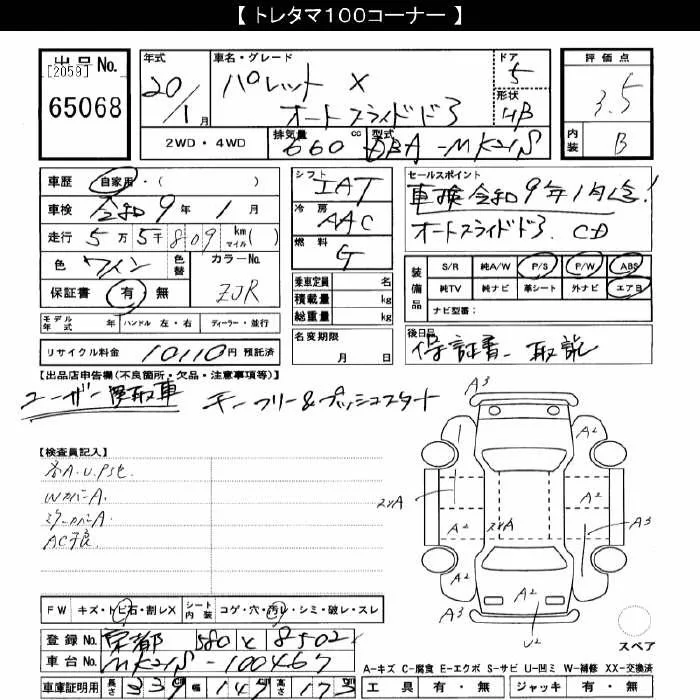 【 トレタマ100コーナー 】
出品No.
[2059]
65068
年式
20/1月
車名・グレード
パレット X
オートスライドドア
ドア
5
形状
HB
評価点
3.5
内装
B
2WD・4WD
排気量 660 cc
型式 DBA-MK21S
車歴 自家用・( )
車検 令和9年1月
走行 5万5千809 km マイル( )
色 ワイン 色替 カラーNo.
ZJR
保証書 有・無
シフト IAT
冷房 AAC
燃料 G
セールスポイント
車検令和9年1月迄!
オートスライドドア. CD
装備品
S/R 純A/W P/S P/W ABS
純TV 純ナビ 革シート 外ナビ エアB
ナビ型番:
乗車定員 名
積載量 kg
総重量 kg
モデル年式 年 ハンドル 左・右 ディーラー・並行
リサイクル料金 10110円 預託済
名変期限
月 日
後日品
保証書、取説
【出品店申告欄(不良箇所・欠品・注意事項等)】
ユーザー買取車 キーフリー&プッシュスタート
【検査員記入】
各A.U.Pセ.
WカバーA.
ミラーカバーA.
AC不良
A3
A2
A2
A2
A2
A3
A2
A2
U2
A3
FW キズ・トビ石・割レX
シート内装 コゲ・穴・汚レ・シミ・破レ・スレ
登録No. 京都 580 と 8502
車台No. MK21S-100467
車庫証明用 長さ 339 幅 147 高さ 173
スペア
A-キズ C-腐食 E-エクボ S-サビ U-凹ミ W-補修 XX-交換済
工具 有・無 ジャッキ 有・無